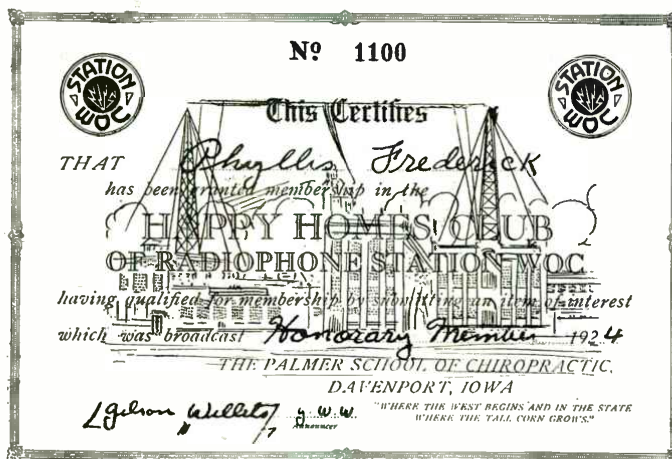 Nº 1100
STATION WOC
STATION WOC
This Certifies
THAT Phyllis Frederick
has been granted membership in the
HAPPY HOMES CLUB
OF RADIOPHONE STATION WOC
having qualified for membership by submitting an item of interest
which was broadcast Honorary Member 1924
THE PALMER SCHOOL OF CHIROPRACTIC,
DAVENPORT, IOWA
"WHERE THE WEST BEGINS AND IN THE STATE
WHERE THE TALL CORN GROWS."
Willets
Announcer